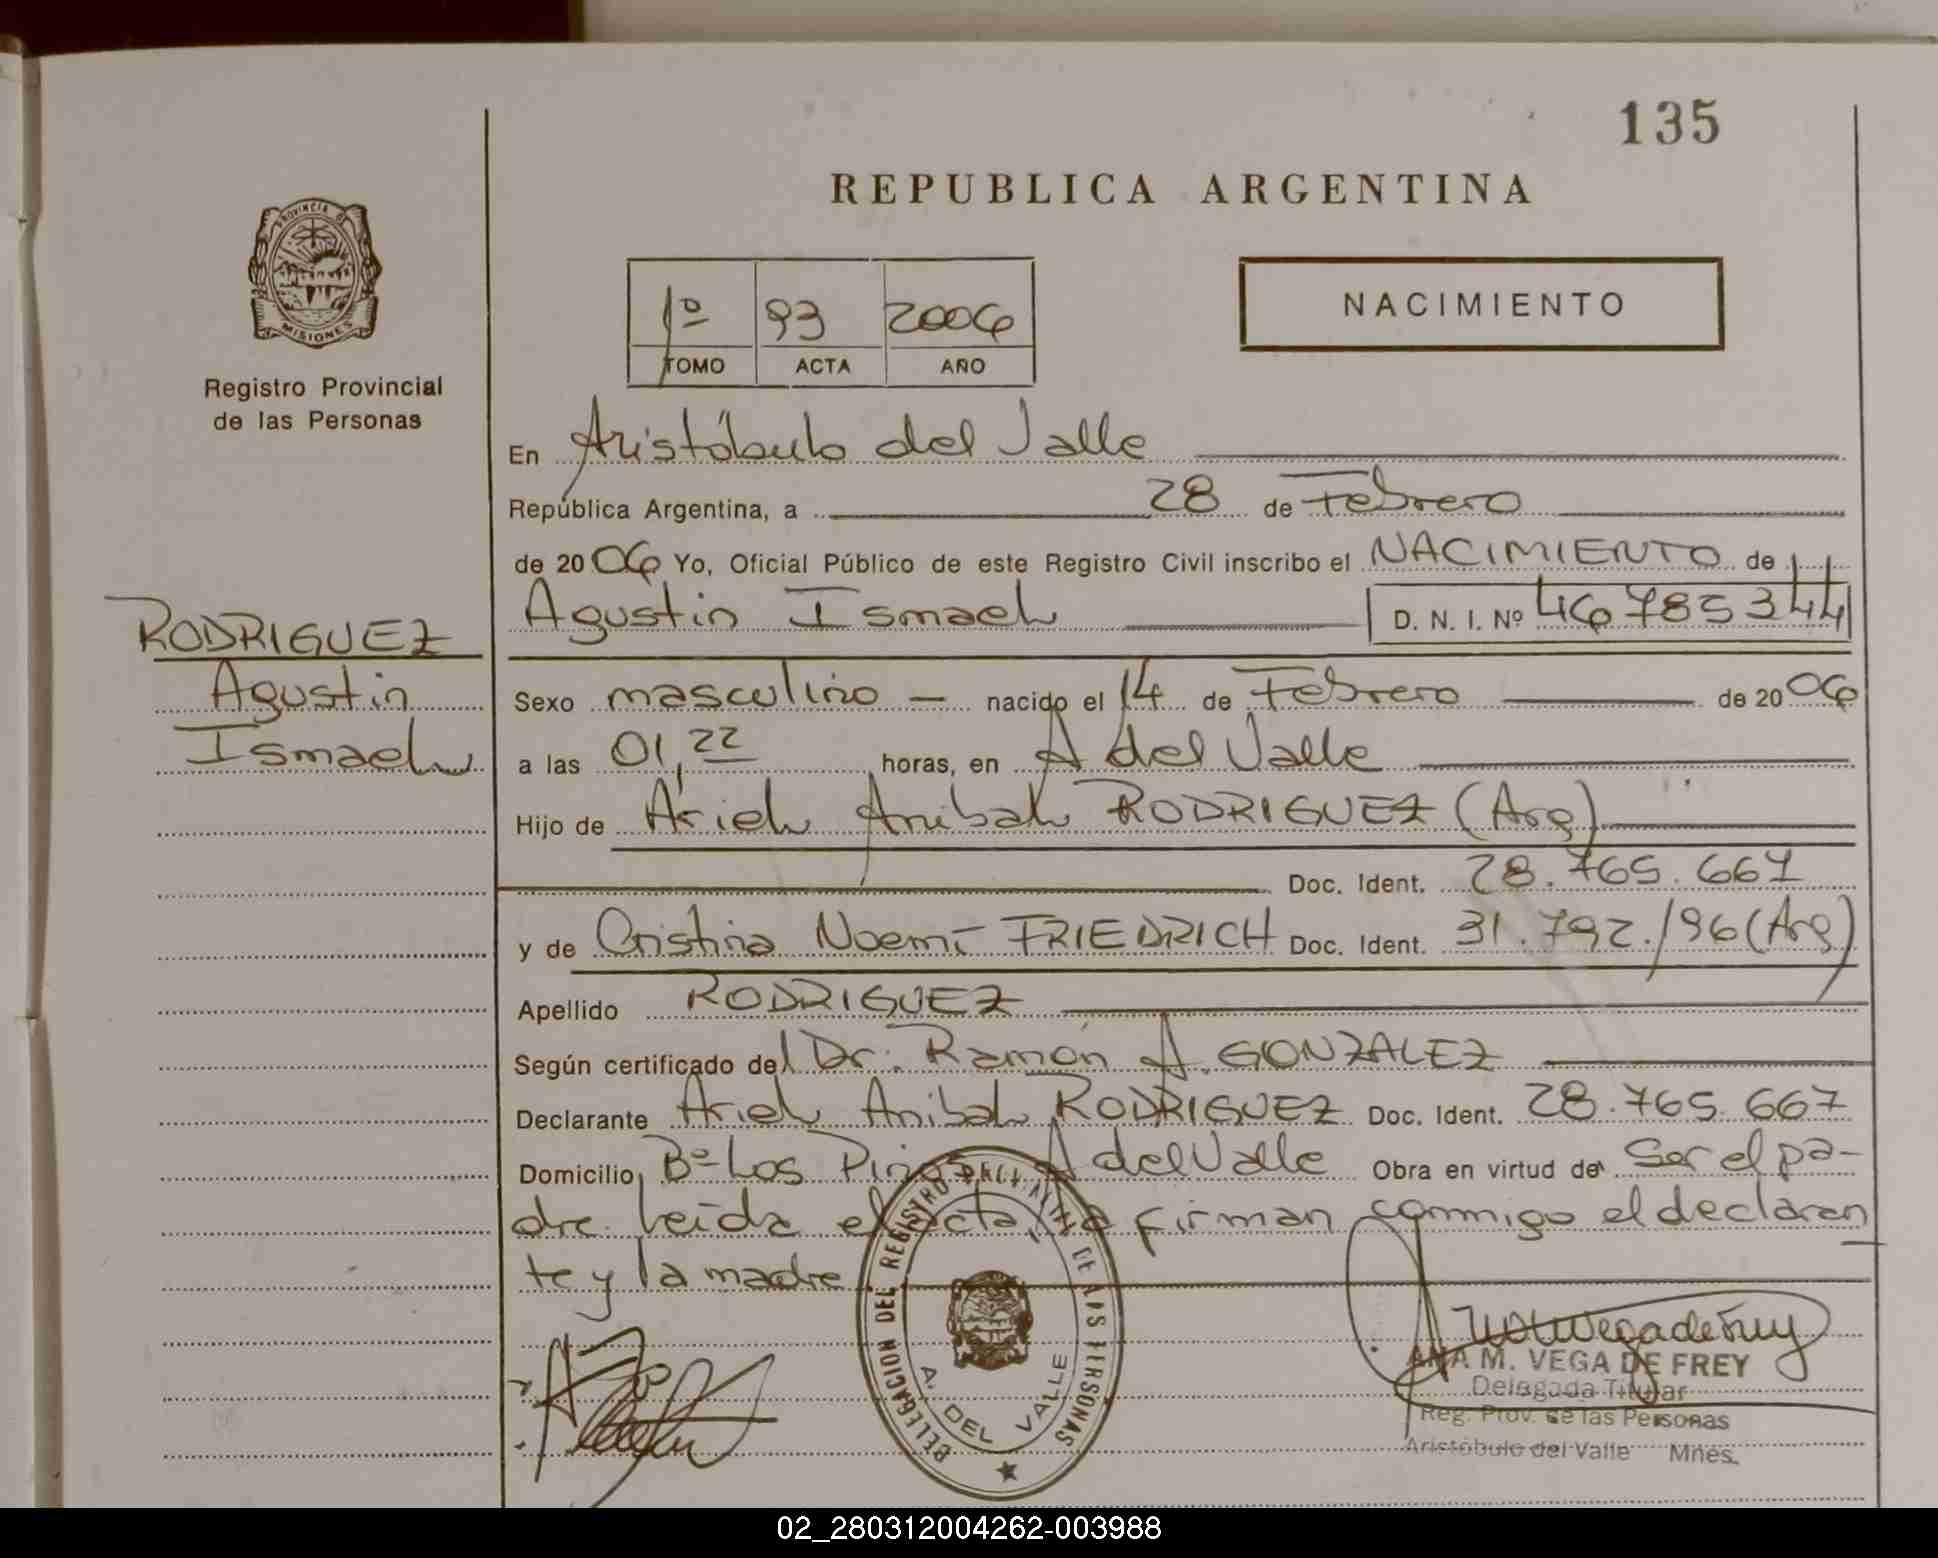 135
REPUBLICA ARGENTINA
PROVINCIA DE
MISIONES
Registro Provincial
de las Personas
1º 93 2006
TOMO ACTA AÑO
NACIMIENTO
En Aristóbulo del Valle
República Argentina, a 28 de Febrero
de 2006 Yo, Oficial Público de este Registro Civil inscribo el NACIMIENTO de
Agustin Ismael D. N. I. Nº 46785344
RODRIGUEZ
Agustin
Ismael
Sexo masculino — nacido el 14 de Febrero de 2006
a las 01,22 horas, en A del Valle
Hijo de Ariel Anibal RODRIGUEZ (Arg)
Doc. Ident. 28.765.667
y de Cristina Noemí FRIEDRICH Doc. Ident. 31.792.196 (Arg)
Apellido RODRIGUEZ
Según certificado del Dr. Ramón A. GONZALEZ
Declarante Ariel Anibal RODRIGUEZ Doc. Ident. 28.765.667
Domicilio Bº Los Pinos A del Valle Obra en virtud de Ser el pa-
dre. Leída el acta, la firman conmigo el declaran
te y la madre
DELEGACION DEL REGISTRO PROVINCIAL DE LAS PERSONAS
A. DEL VALLE
ANA M. VEGA DE FREY
Delegada Titular
Reg. Prov. de las Personas
Aristóbulo del Valle Mnes.
02_280312004262-003988